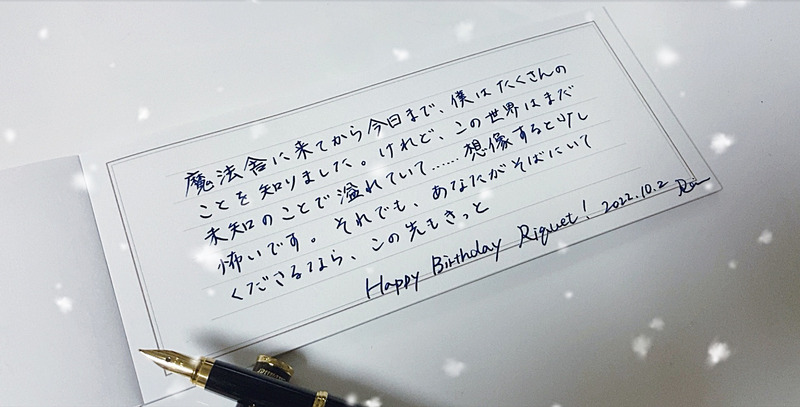 魔法舎に来てから今日まで、僕はたくさんの
ことを知りました。けれど、この世界はまだ
未知のことで溢れていて……想像すると少し
怖いです。それでも、あなたがそばにいて
くださるなら、この先もきっと
Happy Birthday Riquet! 2022.10.2